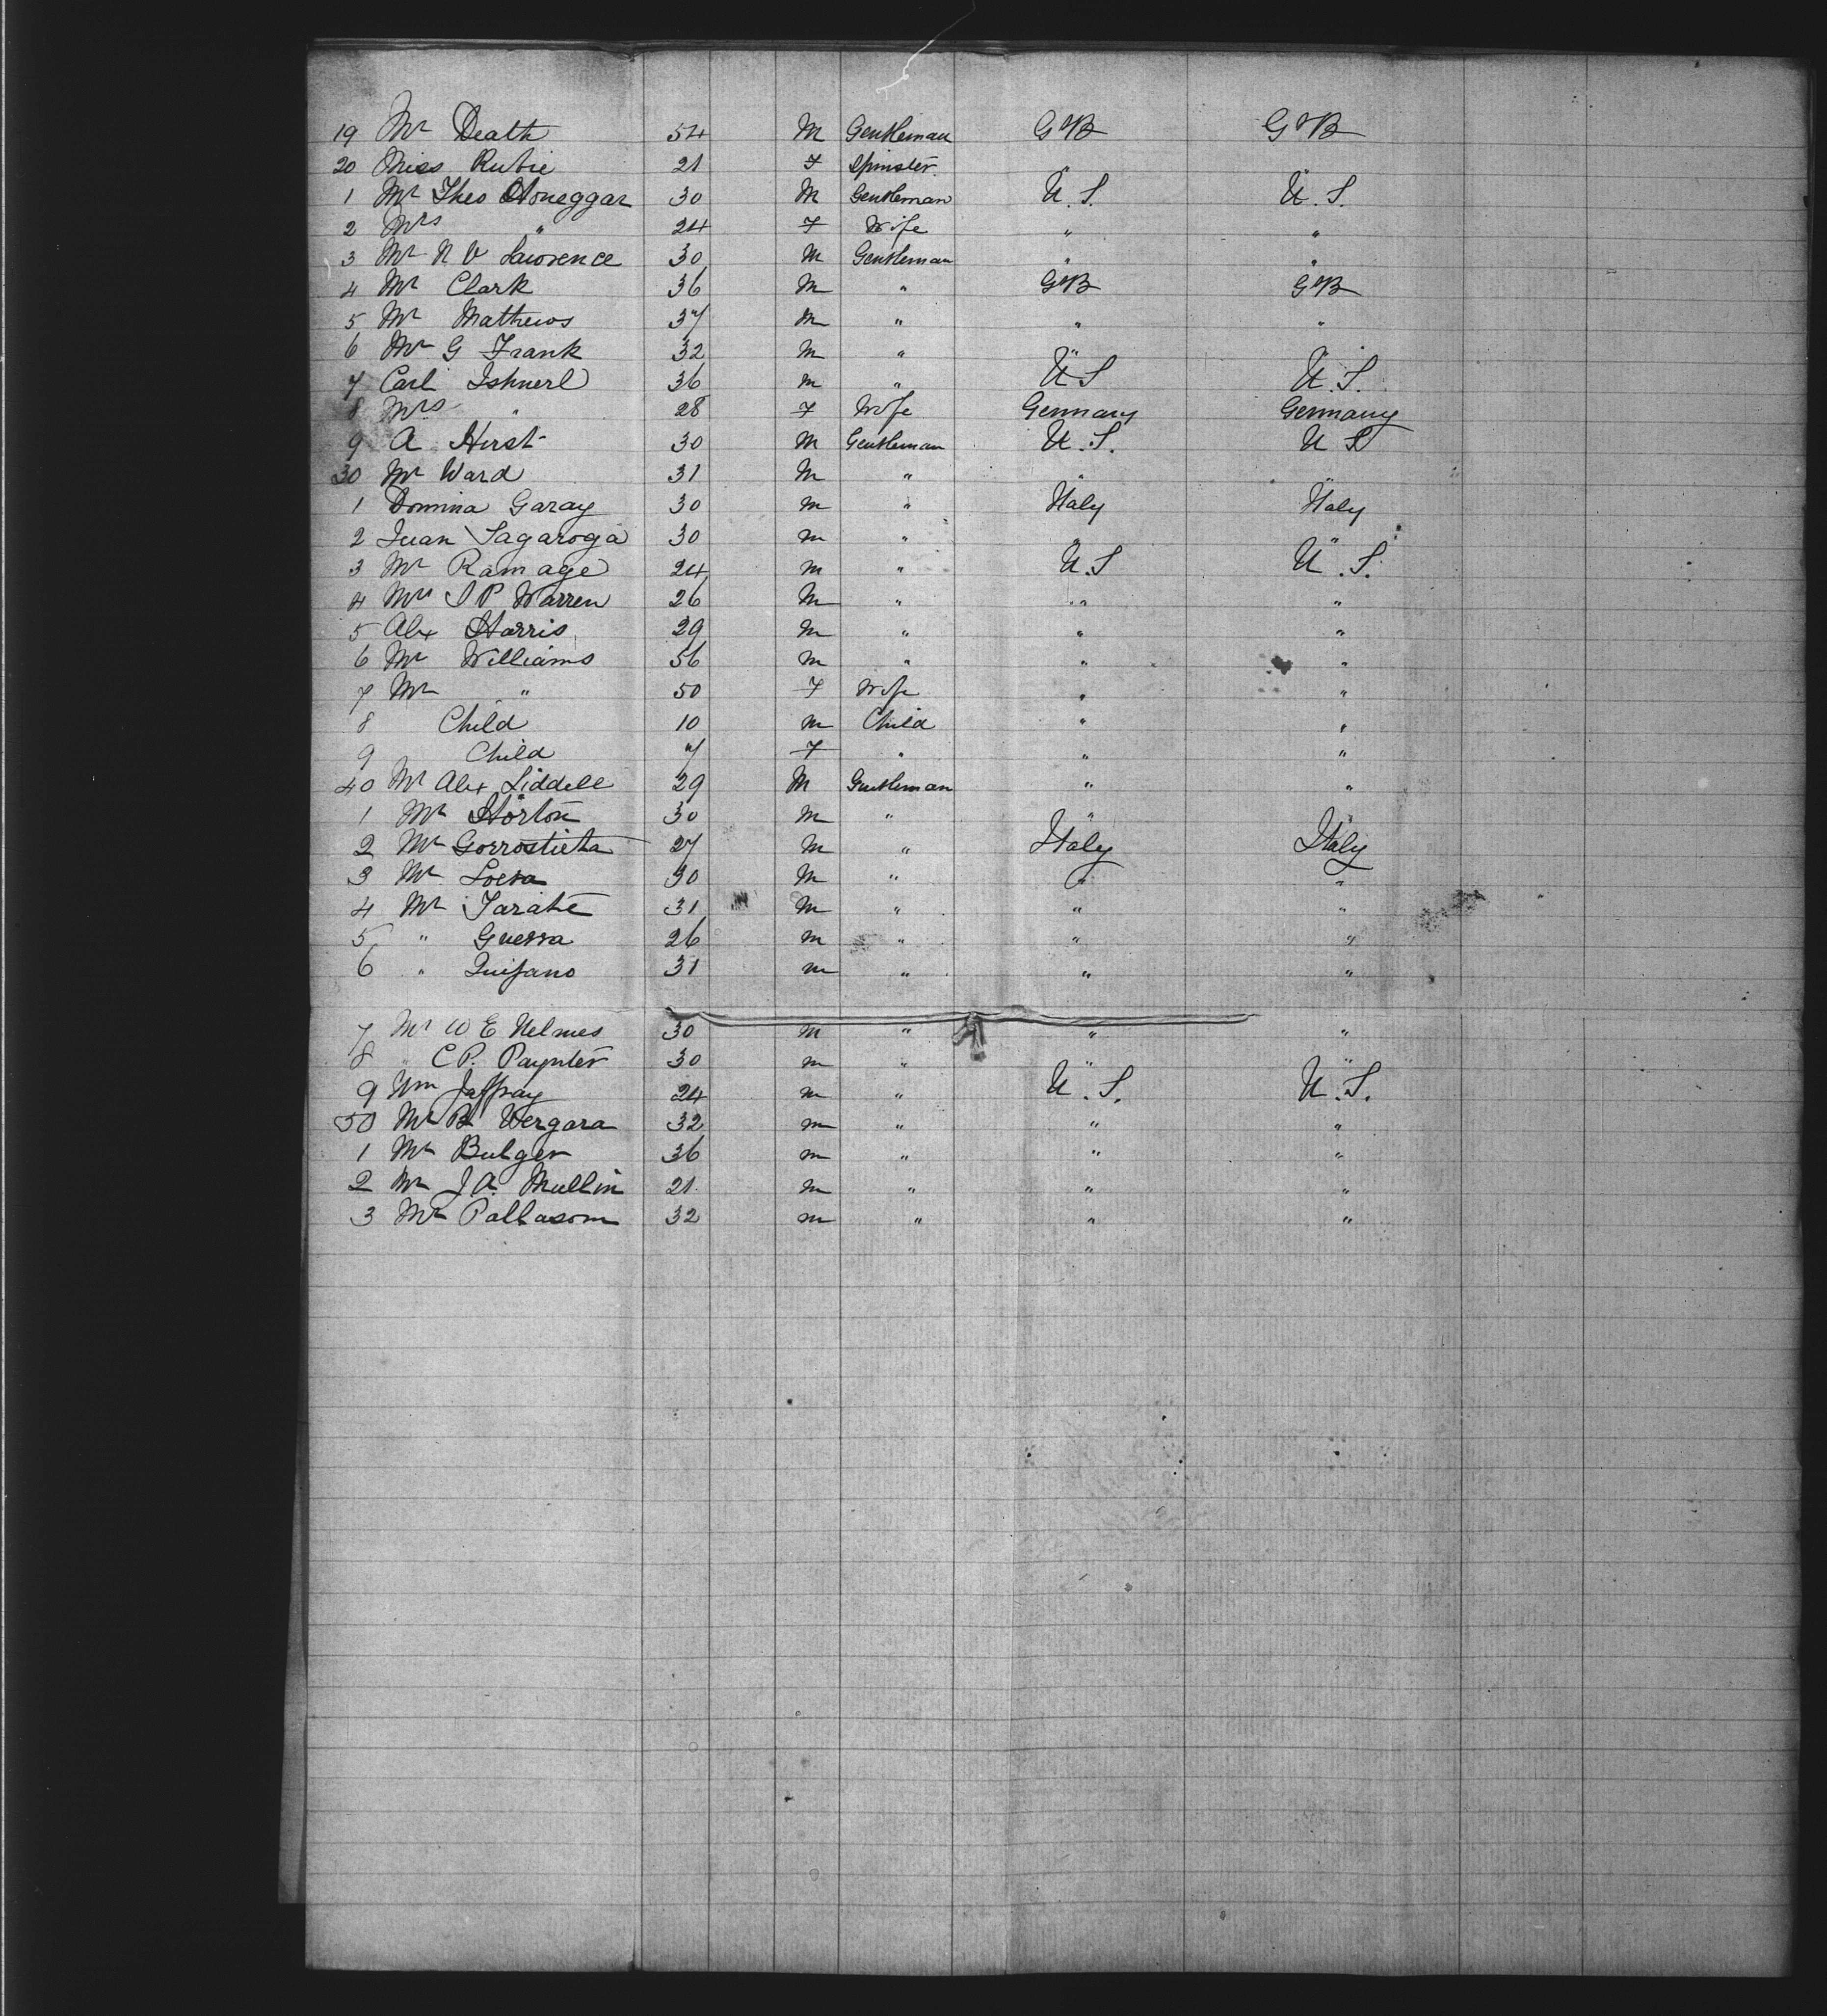 19 Mr Death 54 M Gentleman G B G B
20 Miss Rubie 21 F Spinster " "
1 Mr Theo Honeggar 30 M Gentleman U.S. U.S.
2 Mrs " 24 F Wife " "
3 Mr N V Lawrence 30 M Gentleman " "
4 Mr Clark 36 M " G B G B
5 Mr Mathews 37 M " " "
6 Mr G Frank 32 M " " "
7 Carl 36 M " U S U.S.
8 Mrs " 28 F Wife Germany Germany
9 A Hirst 30 M Gentleman U.S. U S
30 Mr Ward 31 M " " "
1 Domina Garay 30 M " Italy Italy
2 Juan Sagaroga 30 M " " "
3 Mr Ramage 24 M " U.S U.S.
4 Mr S P Warren 26 M " " "
5 Alex Harris 29 M " " "
6 Mr Williams 56 M " " "
7 Mr " 50 F Wife " "
8 Child 10 M Child " "
9 Child 7 F " " "
40 Mr Alex Liddell 29 M Gentleman " "
1 Mr Horton 30 M " " "
2 Mr Gorrostieta 27 M " Italy Italy
3 Mr 30 M " " "
4 Mr Tarate 31 M " " "
5 " Guerra 26 M " " "
6 " Quijano 31 M " " "
7 Mr W E Nelmes 30 M " " "
8 " C P. Paynter 30 M " " "
9 Wm Jaffray 24 M " U.S. U.S.
50 Mr B Vergara 32 M " " "
1 Mr Bulger 36 M " " "
2 Mr J A. Mullin 21 M " " "
3 Mr Pallasom 32 M " " "